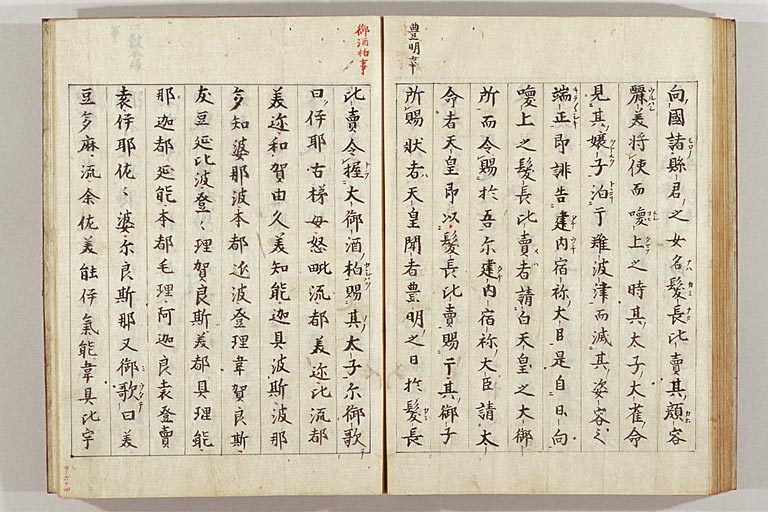 豊明亊
向國諸縣君之女名髮長比賣其顔容
麗美將使而喚上之時其太子大雀命
見其孃子泊于難波津而滅其姿容之
端正即誹告建内宿祢大臣是自日向
喚上之髮長比賣者請白天皇之大御
所而令賜於吾尓建内宿祢大臣請太
命者天皇即以髮長比賣賜于其御子
所賜狀者天皇聞者豊明之日於髮長
御酒柏事
比賣令握大御酒柏賜其太子尓御歌
曰伊耶古梯毋怒毗流都美迩比流都
美迩和賀由久美知能迦具波斯波那
多知婆那波本都迩波登理韋賀良斯
友豆延比波登〻理賀良斯美都具理能
那迦都延能本都毛理阿迦良袁登賣
袁伊耶佐〻婆尓良斯那又御歌曰美
豆多麻流余佐美能伊氣能韋具比宇